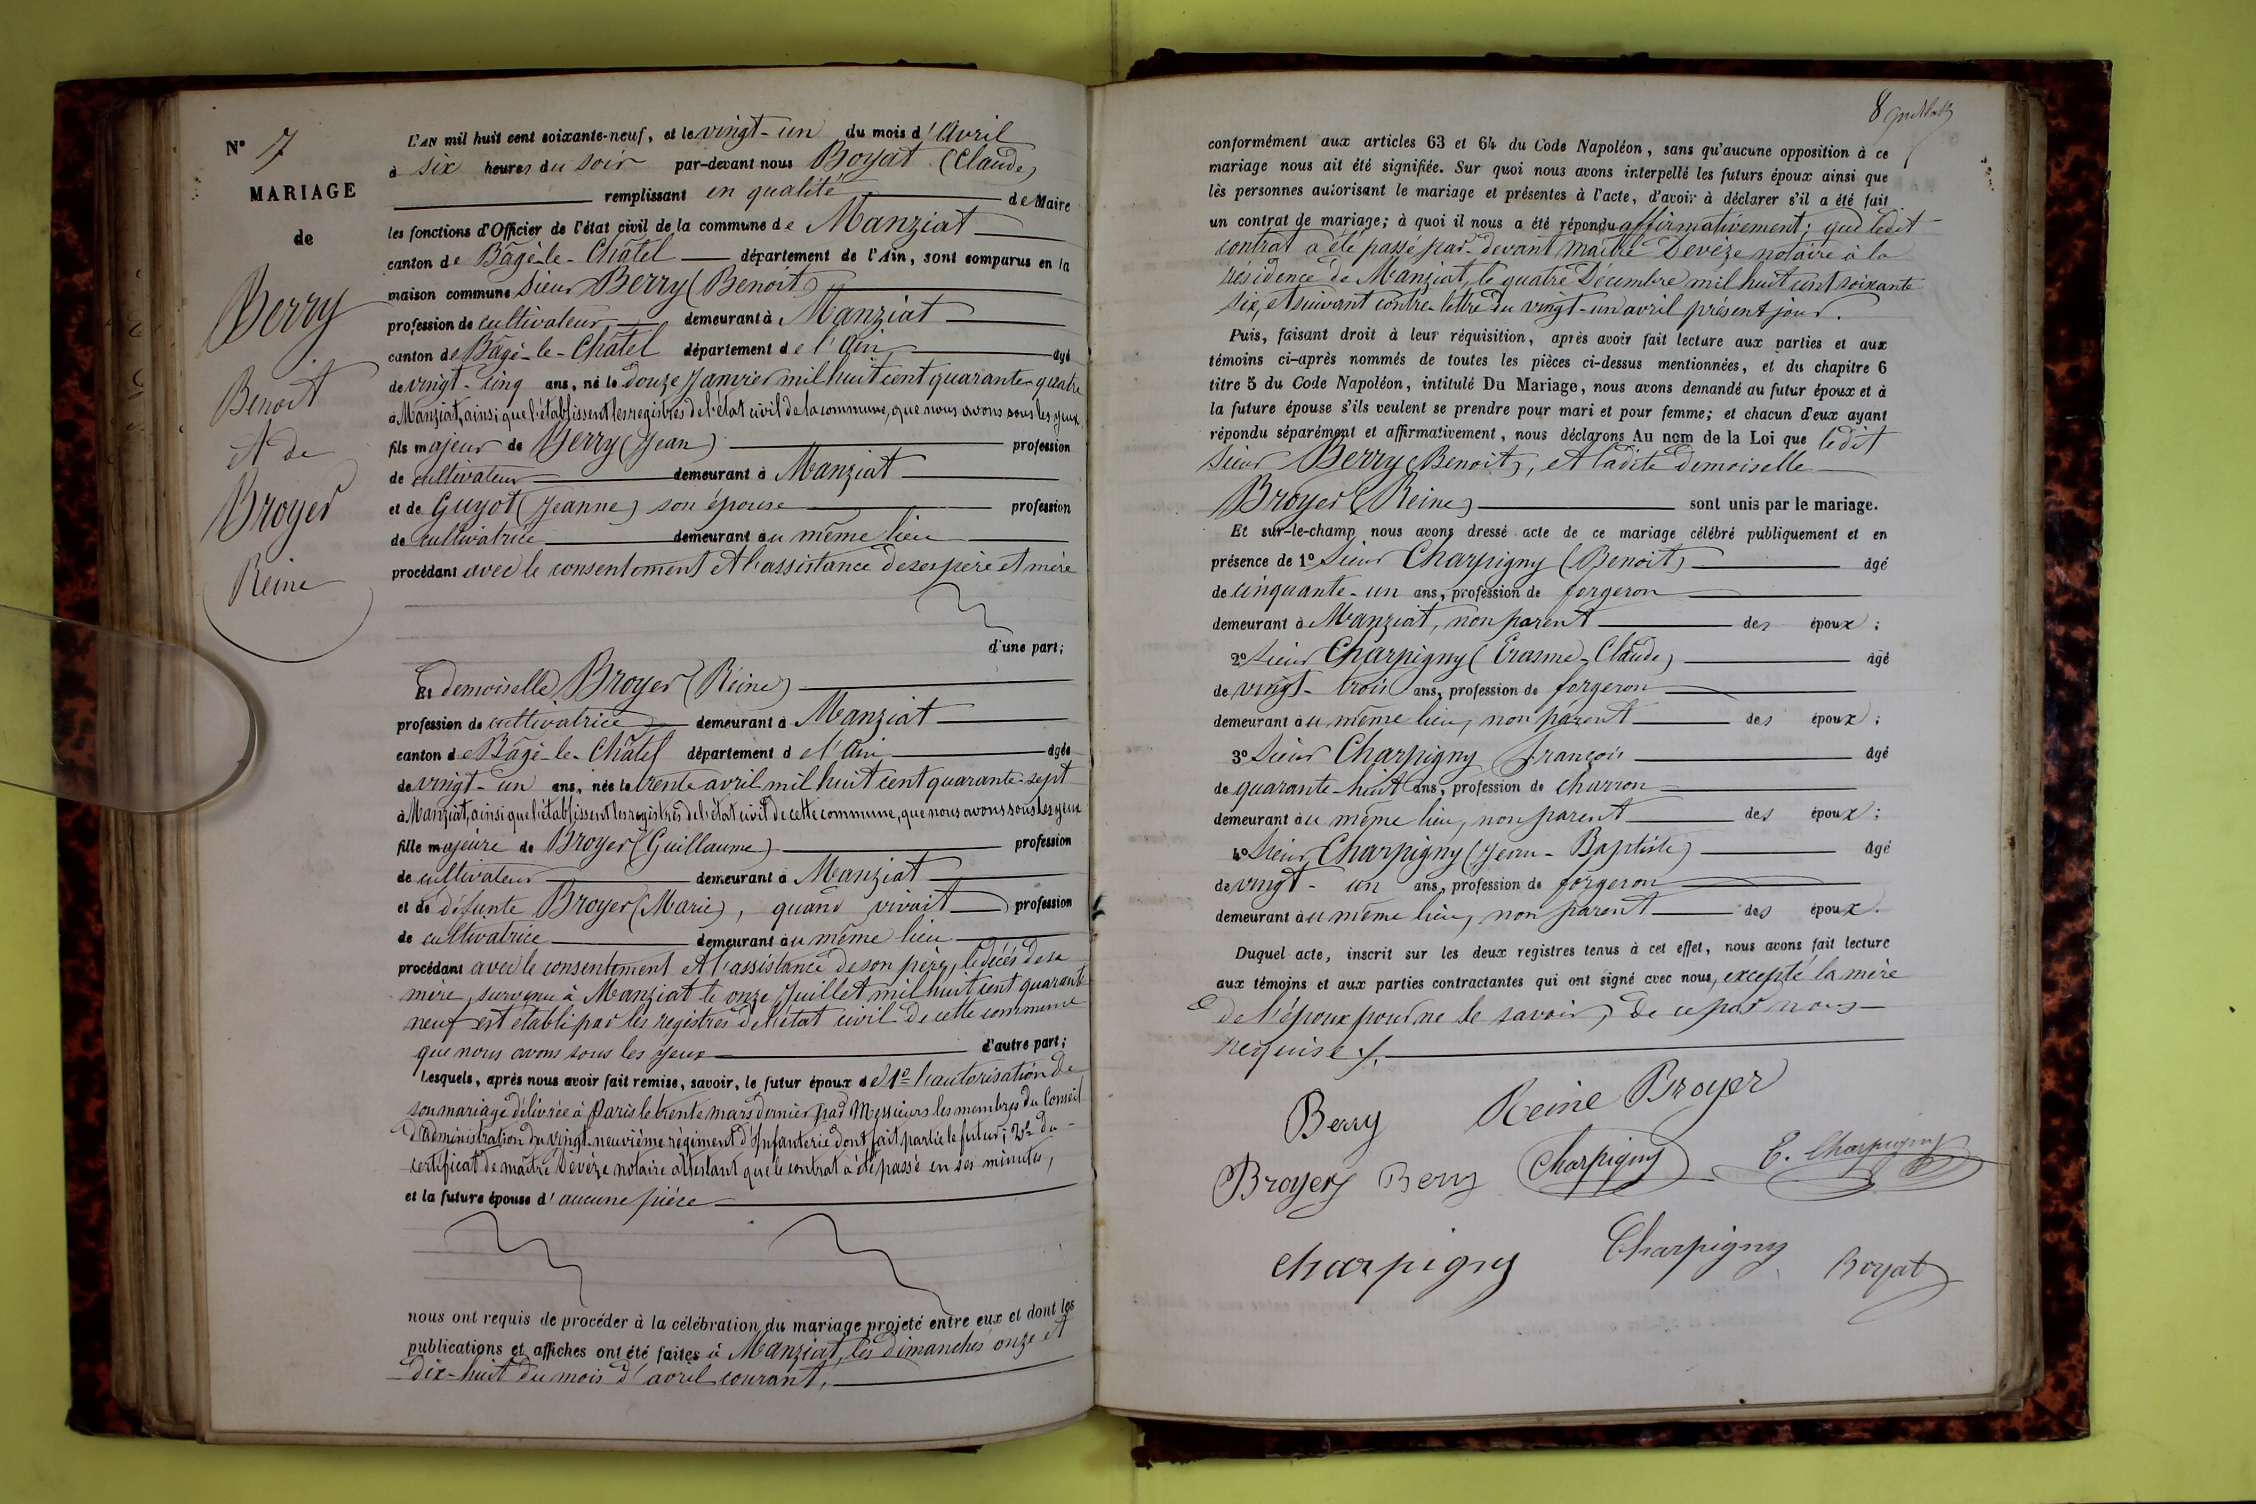 N° 7
MARIAGE
de
Berry
Benoit
et de
Broyer
Reine
L'AN mil huit cent soixante-neuf, et le vingt-un du mois d'Avril
à six heures du soir par-devant nous Boyat (Claude)
remplissant en qualité de Maire
les fonctions d'Officier de l'état civil de la commune de Manziat
canton de Bâgé-le-Châtel département de l'Ain, sont comparus en la
maison commune Sieur Berry (Benoit)
profession de cultivateur demeurant à Manziat
canton de Bâgé-le-Châtel département de l'Ain âgé
de vingt-cinq ans, né le douze Janvier mil huit cent quarante-quatre
à Manziat, ainsi que l'établissent les registres de l'état civil de la commune, que nous avons sous les yeux
fils majeur de Berry (Jean) profession
de cultivateur demeurant à Manziat
et de Guyot (Jeanne) son épouse profession
de cultivatrice demeurant au même lieu
procédant avec le consentement et l'assistance de ses père et mère
d'une part;
Et demoiselle Broyer (Reine)
profession de cultivatrice demeurant à Manziat
canton de Bâgé-le-Châtel département de l'Ain âgée
de vingt-un ans, née le trente avril mil huit cent quarante-sept
à Manziat, ainsi que l'établissent les registres de l'état civil de cette commune, que nous avons sous les yeux
fille majeure de Broyer (Guillaume) profession
de cultivateur demeurant à Manziat
et de défunte Broyer (Marie), quand vivait profession
de cultivatrice demeurant au même lieu
procédant avec le consentement et l'assistance de son père, le décés de sa
mère, survenu à Manziat le onze Juillet mil huit cent quarante
neuf est établi par les registres de l'état civil de cette commune
que nous avons sous les yeux d'autre part;
Lesquels, après nous avoir fait remise, savoir, le futur époux de 1° l'autorisation de
son mariage délivrée à Paris le trente mars dernier par Messieurs les membres du Conseil
d'administration du vingt-neuvième régiment d'Infanterie dont fait partie le futur; 2° du
certificat de maître Devèze notaire attestant que le contrat a été passé en ses minutes,
et la future épouse d'aucune pièce
nous ont requis de procéder à la célébration du mariage projeté entre eux et dont les
publications et affiches ont été faites à Manziat, les dimanches onze et
dix-huit du mois d'avril courant,
8
conformément aux articles 63 et 64 du Code Napoléon, sans qu'aucune opposition à ce
mariage nous ait été signifiée. Sur quoi nous avons interpellé les futurs époux ainsi que
lès personnes autorisant le mariage et présentes à l'acte, d'avoir à déclarer s'il a été fait
un contrat de mariage; à quoi il nous a été répondu affirmativement; que ledit
contrat a été passé par-devant maître Devèze notaire à la
résidence de Manziat, le quatre Décembre mil huit cent soixante
six, et suivant contre-lettre du vingt-un avril présent jour.
Puis, faisant droit à leur réquisition, après avoir fait lecture aux parties et aux
témoins ci-après nommés de toutes les pièces ci-dessus mentionnées, et du chapitre 6
titre 5 du Code Napoléon, intitulé Du Mariage, nous avons demandé au futur époux et à
la future épouse s'ils veulent se prendre pour mari et pour femme; et chacun d'eux ayant
répondu séparément et affirmativement, nous déclarons Au nom de la Loi que ledit
Sieur Berry (Benoit), et ladite demoiselle
Broyer (Reine) sont unis par le mariage.
Et sur-le-champ nous avons dressé acte de ce mariage célébré publiquement et en
présence de 1° Sieur Charpigny (Benoit) âgé
de cinquante-un ans, profession de forgeron
demeurant à Manziat, non parent des époux;
2° Sieur Charpigny (Erasme-Claude) âgé
de vingt-trois ans, profession de forgeron
demeurant au même lieu, non parent des époux;
3° Sieur Charpigny François âgé
de quarante-huit ans, profession de charron
demeurant au même lieu, non parent des époux;
4° Sieur Charpigny (Jean-Baptiste) âgé
de vingt-un ans, profession de forgeron
demeurant au même lieu, non parent des époux.
Duquel acte, inscrit sur les deux registres tenus à cet effet, nous avons fait lecture
aux témoins et aux parties contractantes qui ont signé avec nous, excepté la mère
de l'époux pour ne le savoir, de ce par nous
requise ./.
Berry Reine Broyer
Broyer Berry Charpigny E. Charpigny
Charpigny Charpigny Boyat